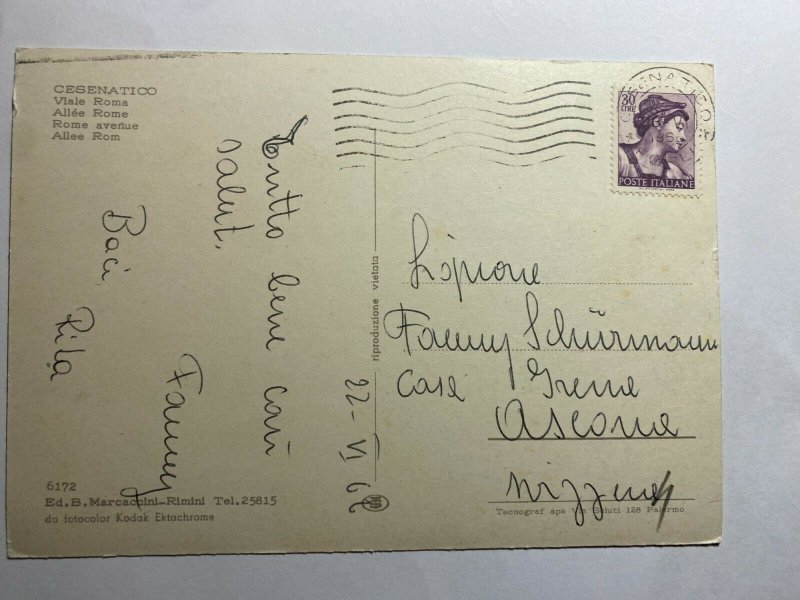 CESENATICO
Viale Roma
Allée Rome
Rome avenue
Allee Rom
Tutto bene cari
salut.
Baci
Rita
Fanny
22-VI 62
riproduzione vietata
30
LIRE
POSTE ITALIANE
CESENATICO
Fanny Schürmann
Casa Irene
Ascona
Svizzera
6172
Ed. B. Marcaccini-Rimini Tel. 25815
da fotocolor Kodak Ektachrome
Tecnograf spa Via Sciuti 128 Palermo